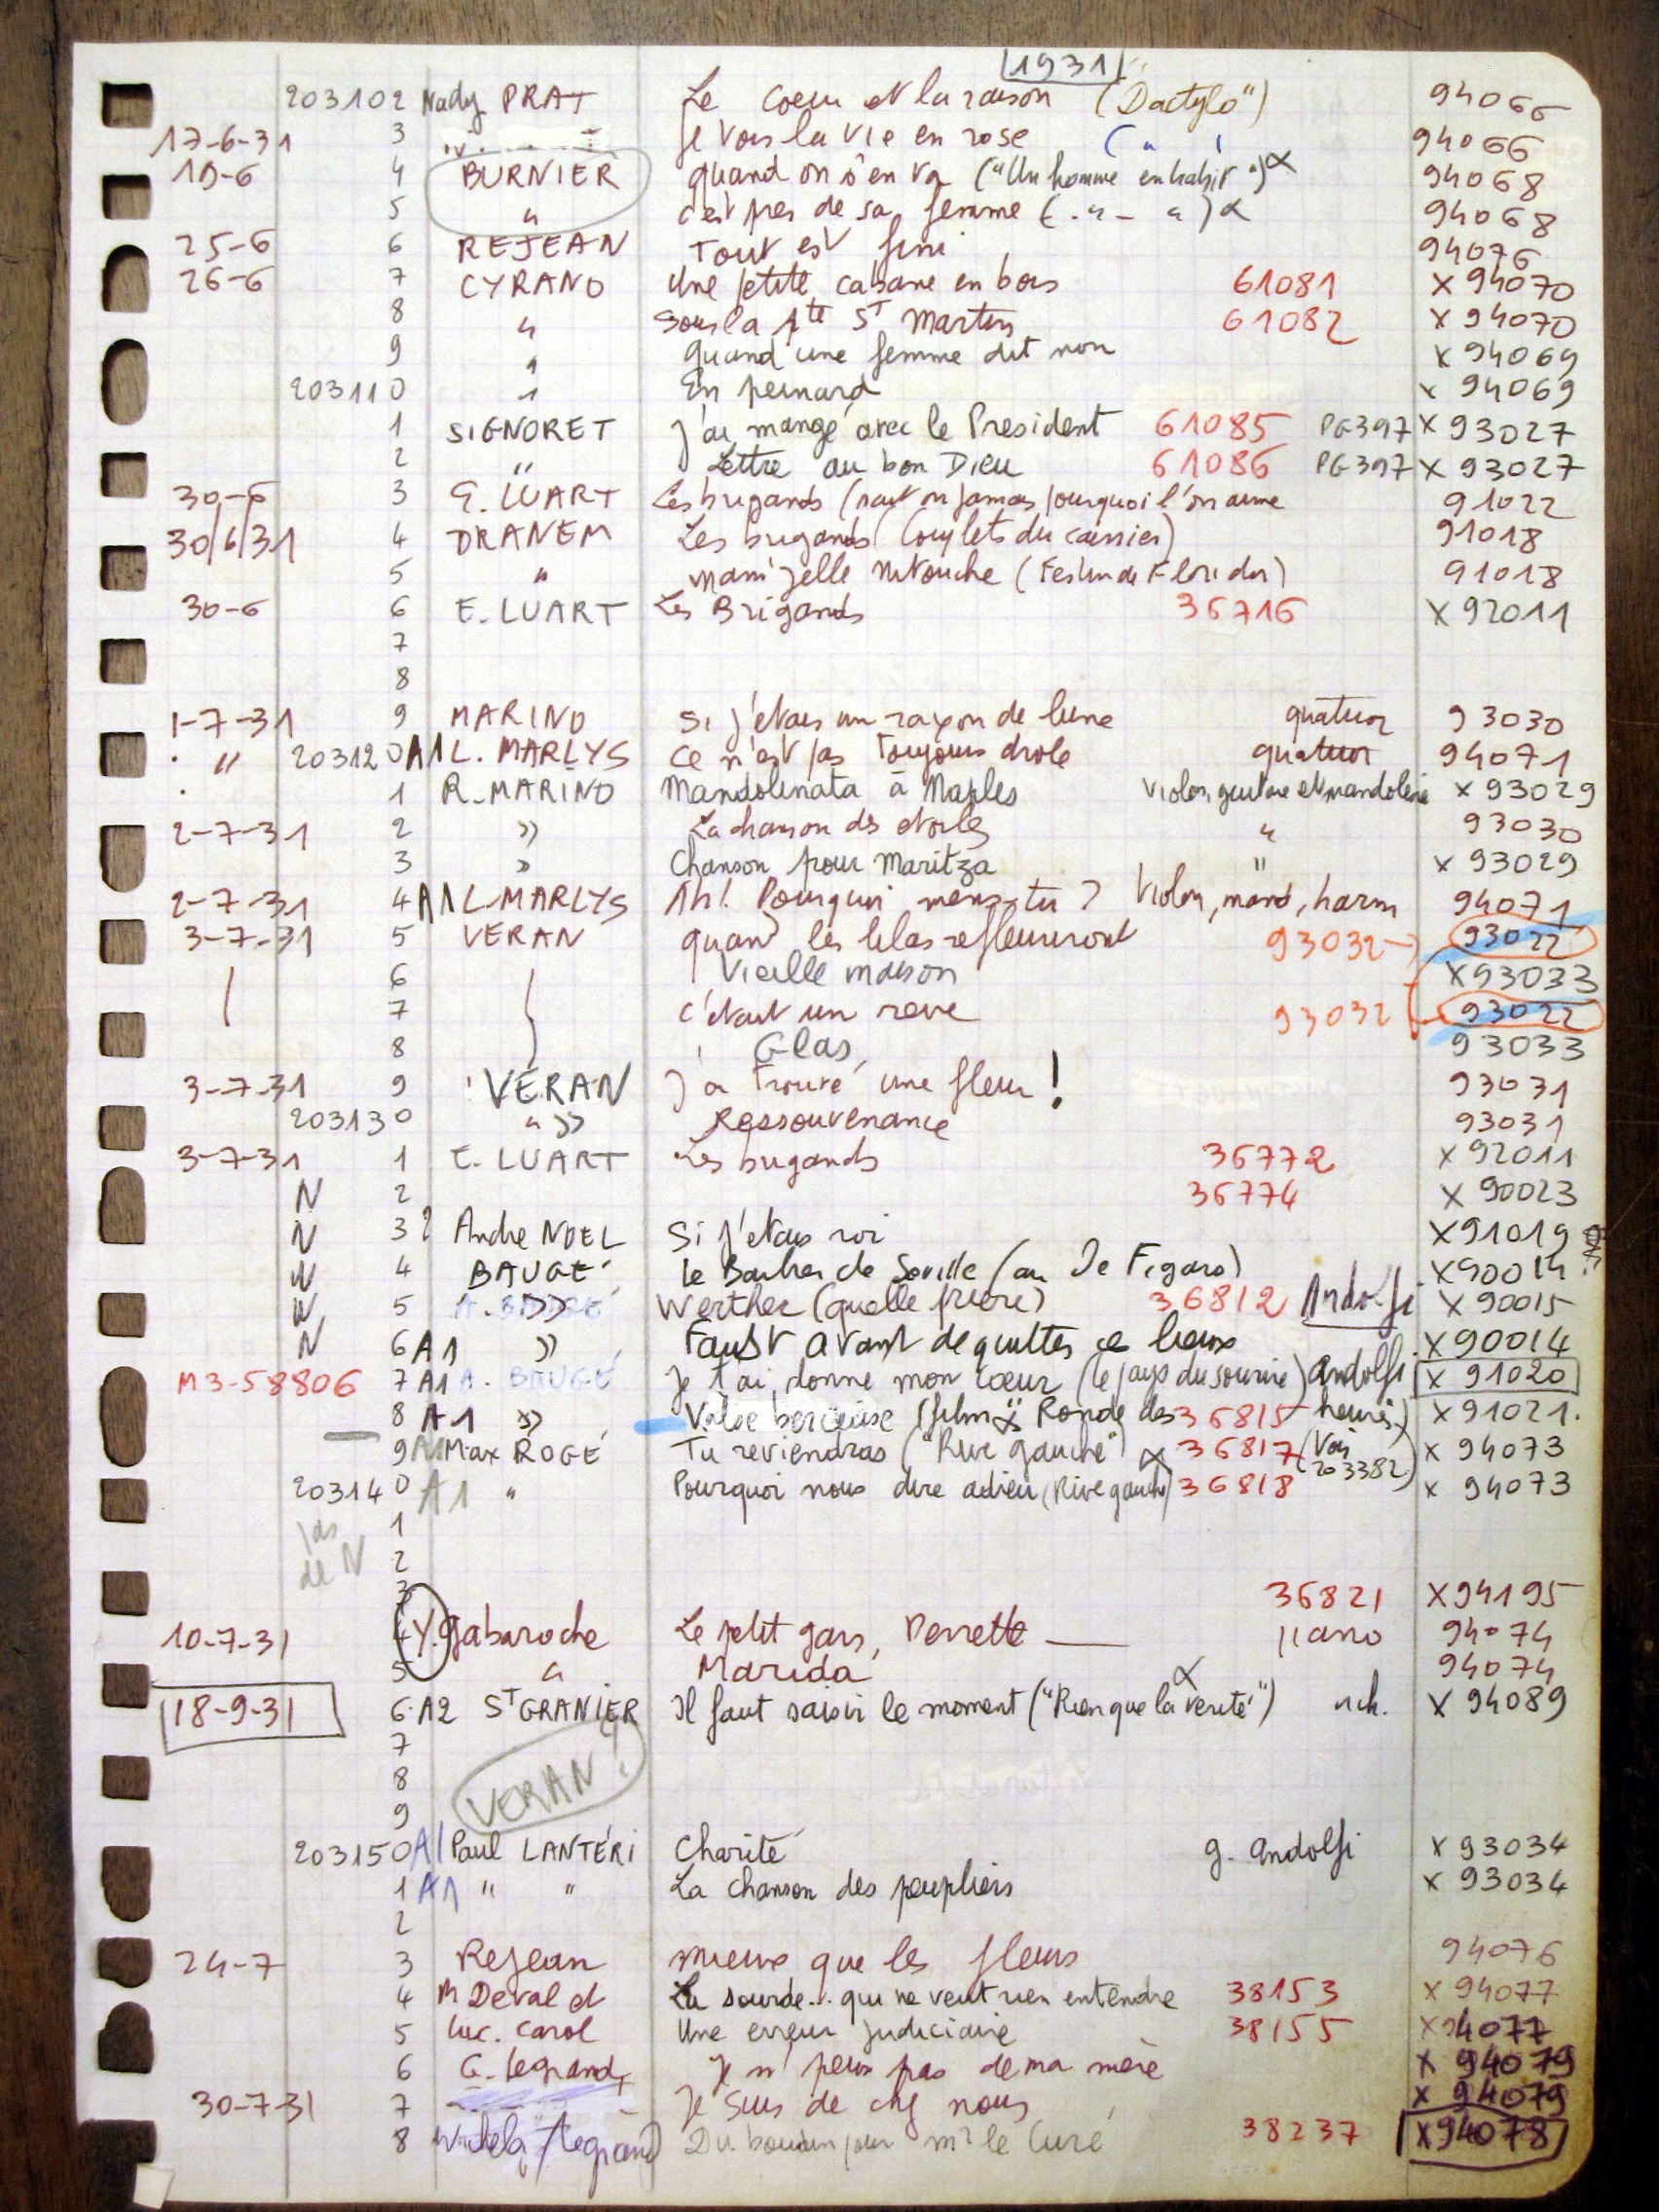 1931
203102 Nady PRAT Le Coeur et la raison ("Dactylo") 94066
17-6-31 3 Je vois la vie en rose ( " 94066
19-6 4 BURNIER quand on s'en va ("Un homme en habit") α 94068
5 " c'est pres de sa femme ( . " - " ) α 94068
25-6 6 REJEAN Tout est fini 94076
26-6 7 CYRANO Une petite cabane en bois 61081 X 94070
8 " Sous la Pte St Martin 61082 X 94070
9 " Quand une femme dit non X 94069
203110 " En peinard X 94069
1 SIGNORET J'ai mangé avec le President 61085 PG397 X 93027
2 " Lettre au bon Dieu 61086 PG397 X 93027
30-6 3 E. LUART Les brigands (sait on jamais pourquoi l'on aime 91022
30/6/31 4 DRANEM Les brigands (Couplets du caissier) 91018
5 " mam'zelle nitouche (Festin de Floridor) 91018
30-6 6 E. LUART Les Brigands 36716 X 92011
7
8
1-7-31 9 MARINO Si j'etais un rayon de lune quatuor 93030
. " 203120 A1 L. MARLYS Ce n'est pas toujours drole quatuor 94071
. 1 R. MARINO Mandolinata à Naples Violon, guitare et mandoline X 93029
2-7-31 2 » La chanson des etoiles " 93030
3 » Chanson pour Maritza " X 93029
2-7-31 4 A1 L. MARLYS Ah! Pourquoi mens-tu? Violon, mand, harm 94071
3-7-31 5 VERAN quand les lilas refleuriront 93032 → 93022
6 Vieille maison X 93033
7 C'etait un reve 93032 93022
8 Glas 93033
3-7-31 9 VÉRAN J'ai trouvé une fleur! 93031
203130 " » Ressouvenance 93031
3-7-31 1 E. LUART Les brigands 36772 X 92011
N 2 36774 X 90023
N 3? Andre NOEL Si j'etais roi X 91019
N 4 BAUGÉ Le Barbier de Seville (air de Figaro) X 90014
N 5 A. BAUGÉ Werther (quelle priere) 36812 Andolfi X 90015
N 6 A1 » Faust avant de quitter ce lieux X 90014
M3-58806 7 A1 A. BAUGÉ Je t'ai donne mon coeur (le pays du sourire) Andolfi X 91020
8 A1 » Valse berceuse (film Ronde des 36815 heures) X 91021.
9 A1 Max ROGÉ Tu reviendras ("Rive gauche") α 36817 (Voir 203382) X 94073
203140 A1 " Pourquoi nous dire adieu (Rive gauche) 36818 X 94073
pas de N 1
2
3 36821 X 94195
10-7-31 4 Y. Gabaroche Le petit gars, Perrette — piano 94074
5 " Marida 94074
18-9-31 6. A2 St GRANIER Il faut saisir le moment ("Rien que la verité") α ork. X 94089
7
8 VERAN?
9
203150 A1 Paul LANTÉRI Charité G. Andolfi X 93034
1 A1 " " La chanson des peupliers X 93034
2
24-7 3 Rejean mieux que les fleurs 94076
4 M Deval et La sourde... qui ne veut rien entendre 38153 X 94077
5 Luc. Carol Une erreur judiciaire 38155 X 94077
6 G. Legrand Je n' peux pas de ma mère X 94079
30-7-31 7 Je Suis de chez nous X 94079
8 / Legrand Du boudin pour mr le Curé 38237 X 94078